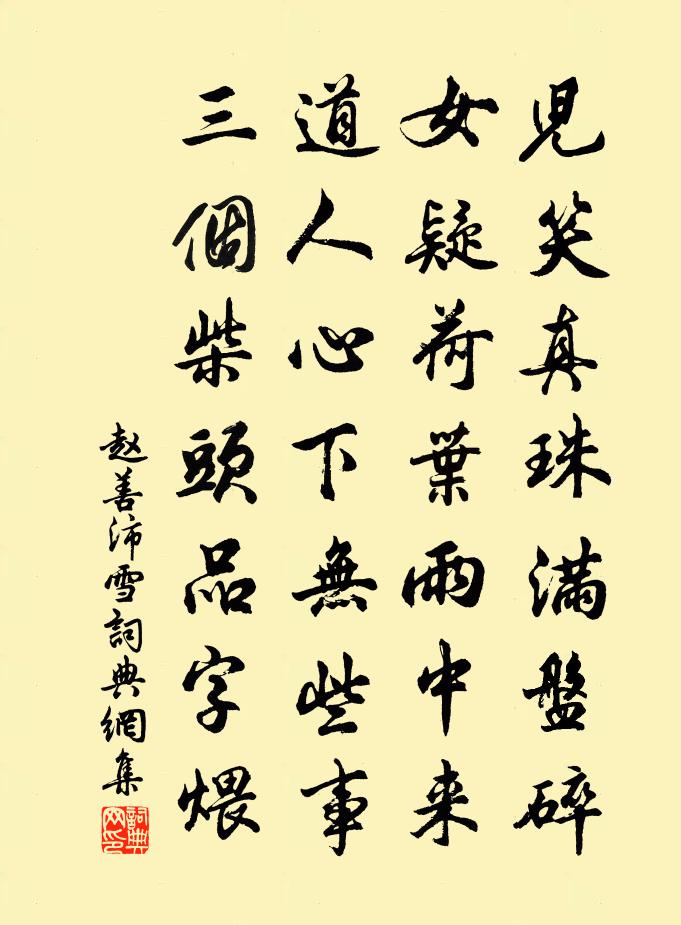 児笑真珠滿盤碎
女疑荷葉雨中来
道人心下無些事
三個柴頭品字煨
趙善沛雪詞典網集
詞典网印